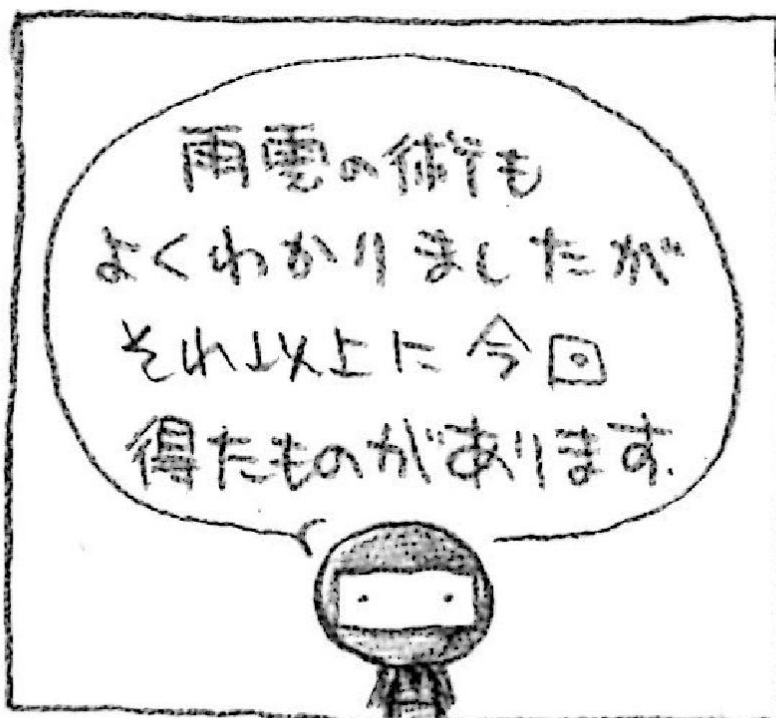 雨雲の術も
よくわかりましたが
それ以上に今回
得たものがあります.